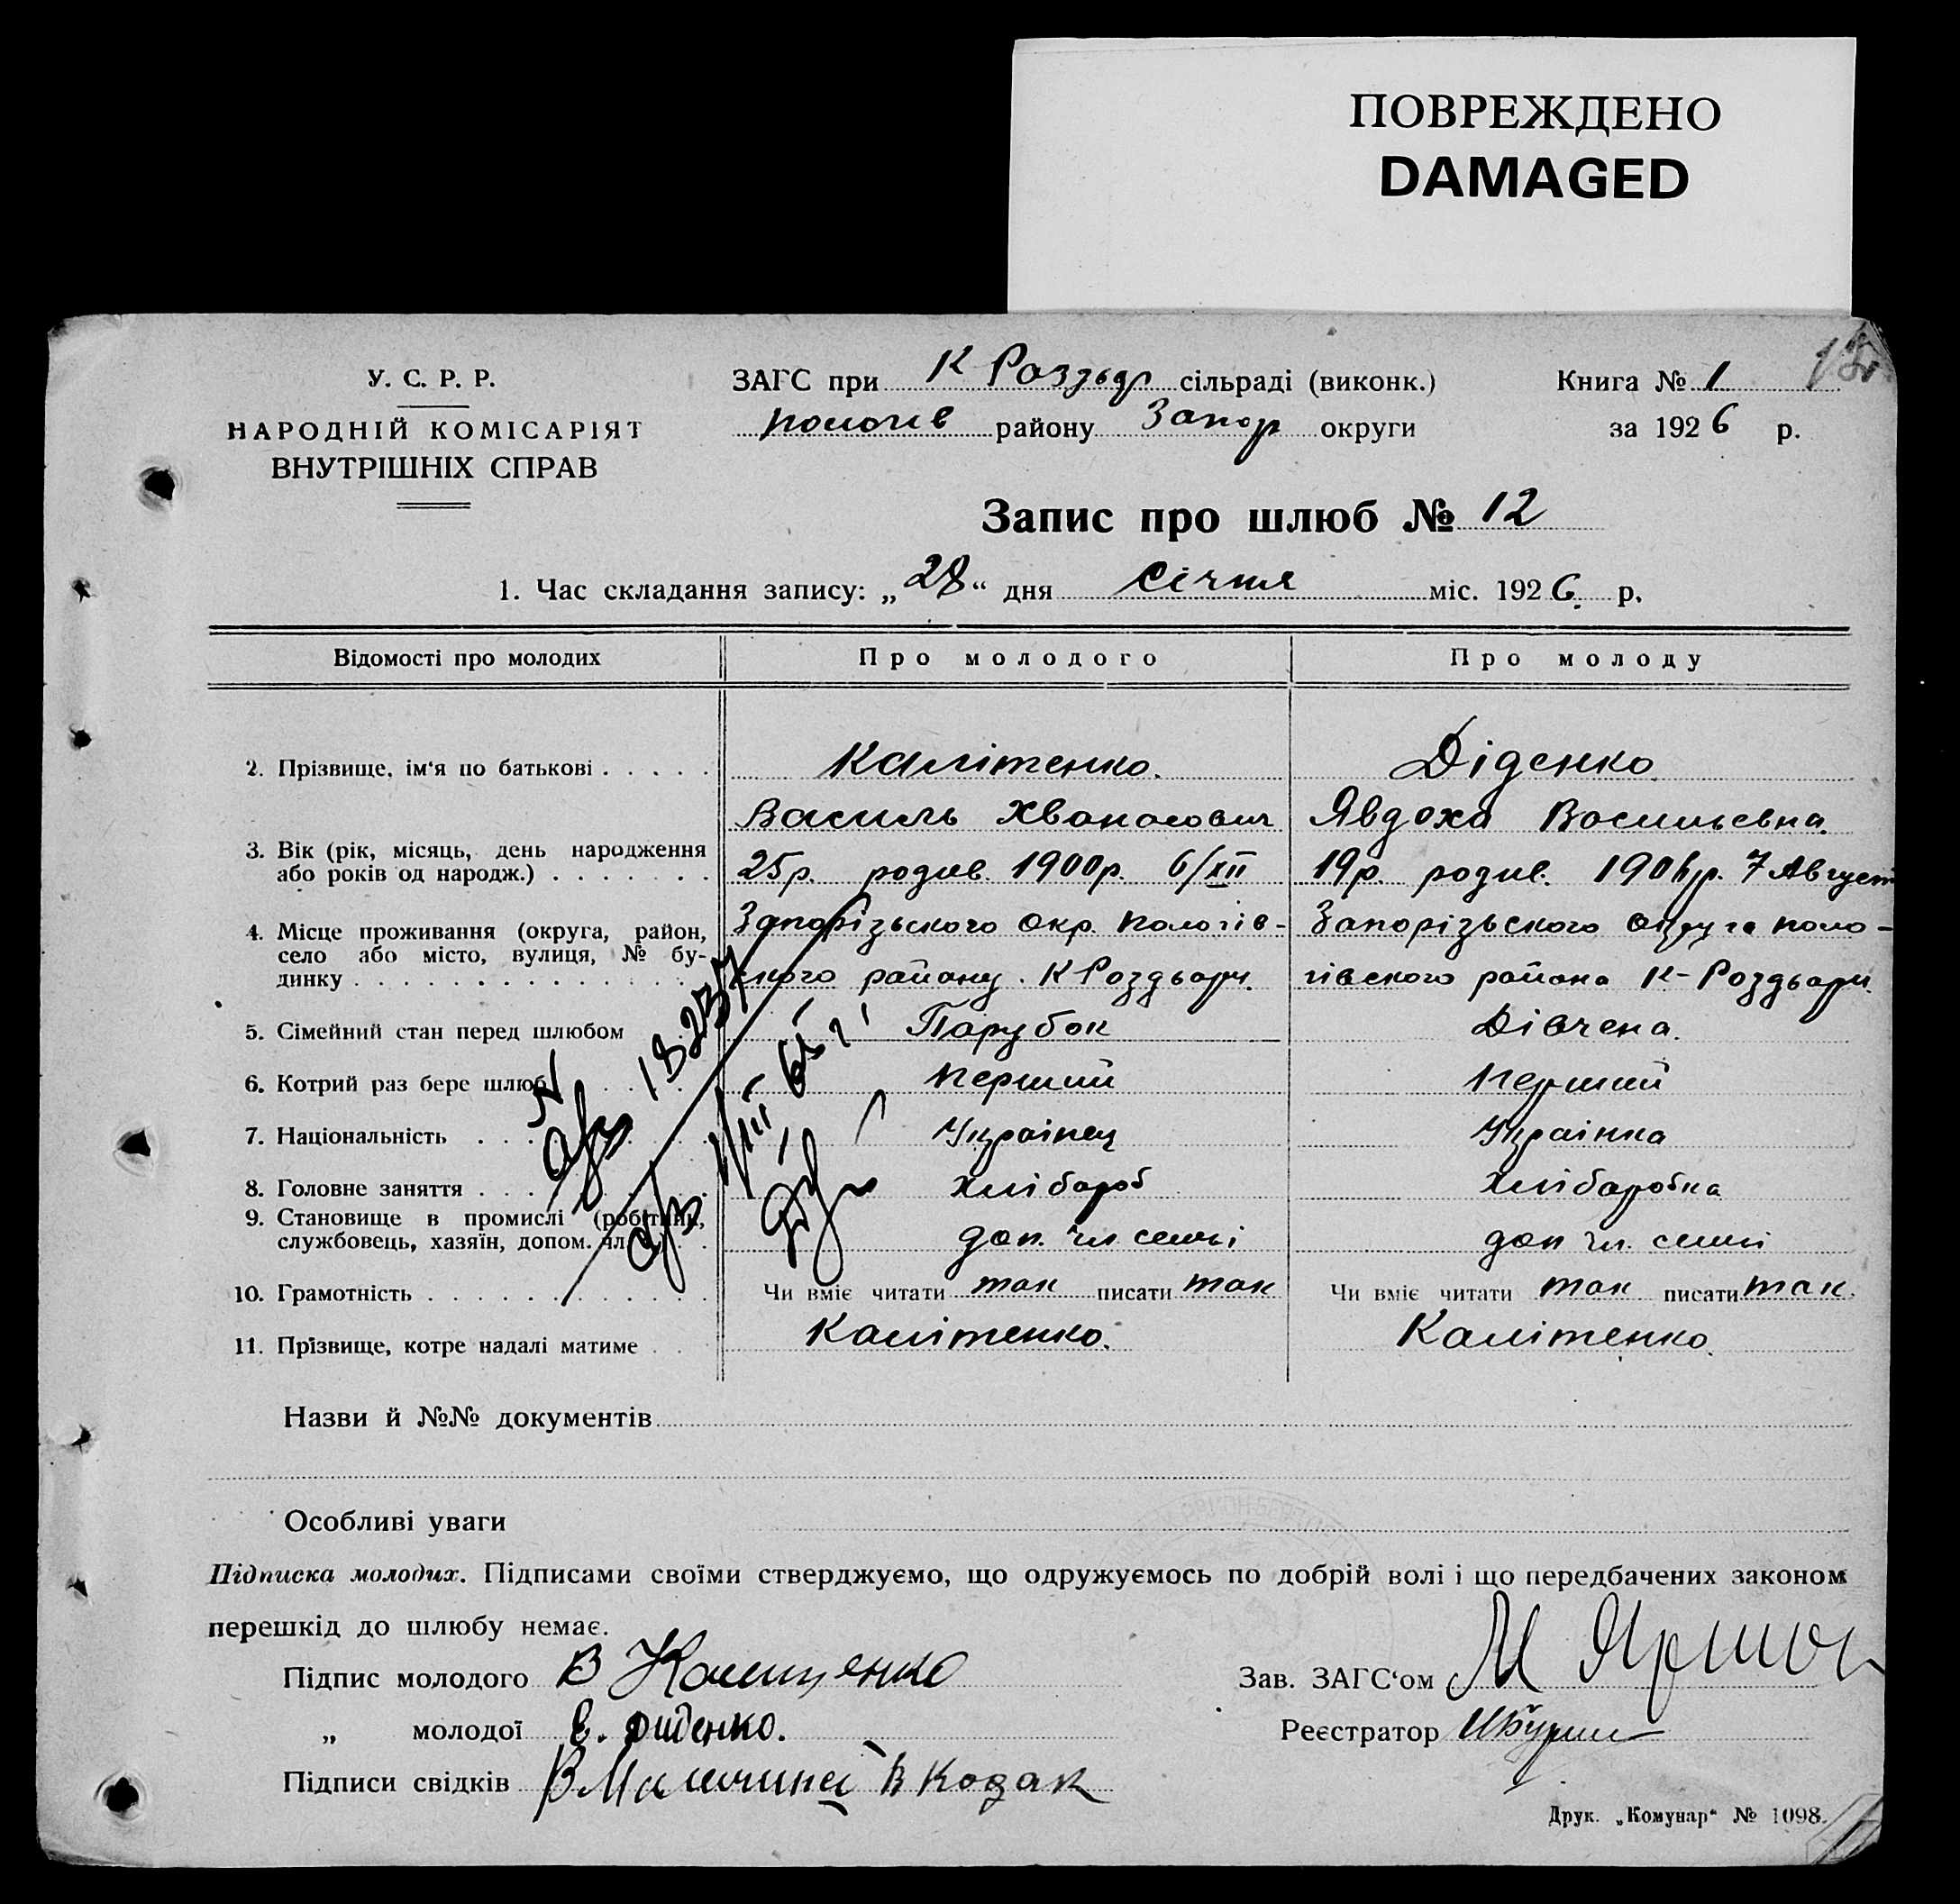 ПОВРЕЖДЕНО
DAMAGED
У. С. Р. Р.
НАРОДНІЙ КОМІСАРІЯТ
ВНУТРІШНІХ СПРАВ
ЗАГС при К Роззьдр сільраді (виконк.)
Пологів району Запор округи
Книга № 1
за 1926 р.
Запис про шлюб № 12
1. Час складання запису: „28“ дня Січня міс. 1926. р.
Відомості про молодих Про молодого Про молоду
2. Прізвище, ім‘я по батькові Калітенко. Діденко
Василь Хванасович Явдоха Васильевна
3. Вік (рік, місяць, день народження або років од народж.) 25р. родив. 1900р. 6/XII 19р. родив. 1906р. 7 Август
4. Місце проживання (округа, район, село або місто, вулиця, № будинку Запорізьского Окр. Пологів- Запорізьского Округа Поло-
ского району. К Роздьори. гівского района К-Роздьори
5. Сімейний стан перед шлюбом Парубок Дівчена.
6. Котрий раз бере шлюб Перший Перший
7. Національність Українец Українка
8. Головне заняття Хлібароб Хлібаробка
9. Становище в промислі (робітник, службовець, хазяїн, допом. чл. доп. чл. семьі доп чл. семьі
10. Грамотність Чи вміє читати так писати так Чи вміє читати так писати так.
11. Прізвище, котре надалі матиме Калітенко. Калітенко.
N 18237
Назви й №№ документів
Особливі уваги
Підписка молодих. Підписами своїми стверджуємо, що одружуємось по добрій волі і що передбачених законом
перешкід до шлюбу немає.
Підпис молодого В Калитенко
Зав. ЗАГС‘ом М
„ молодої Е. Диденко.
Реєстратор
Підписи свідків В Козак
Друк. „Комунар“ № 1098.